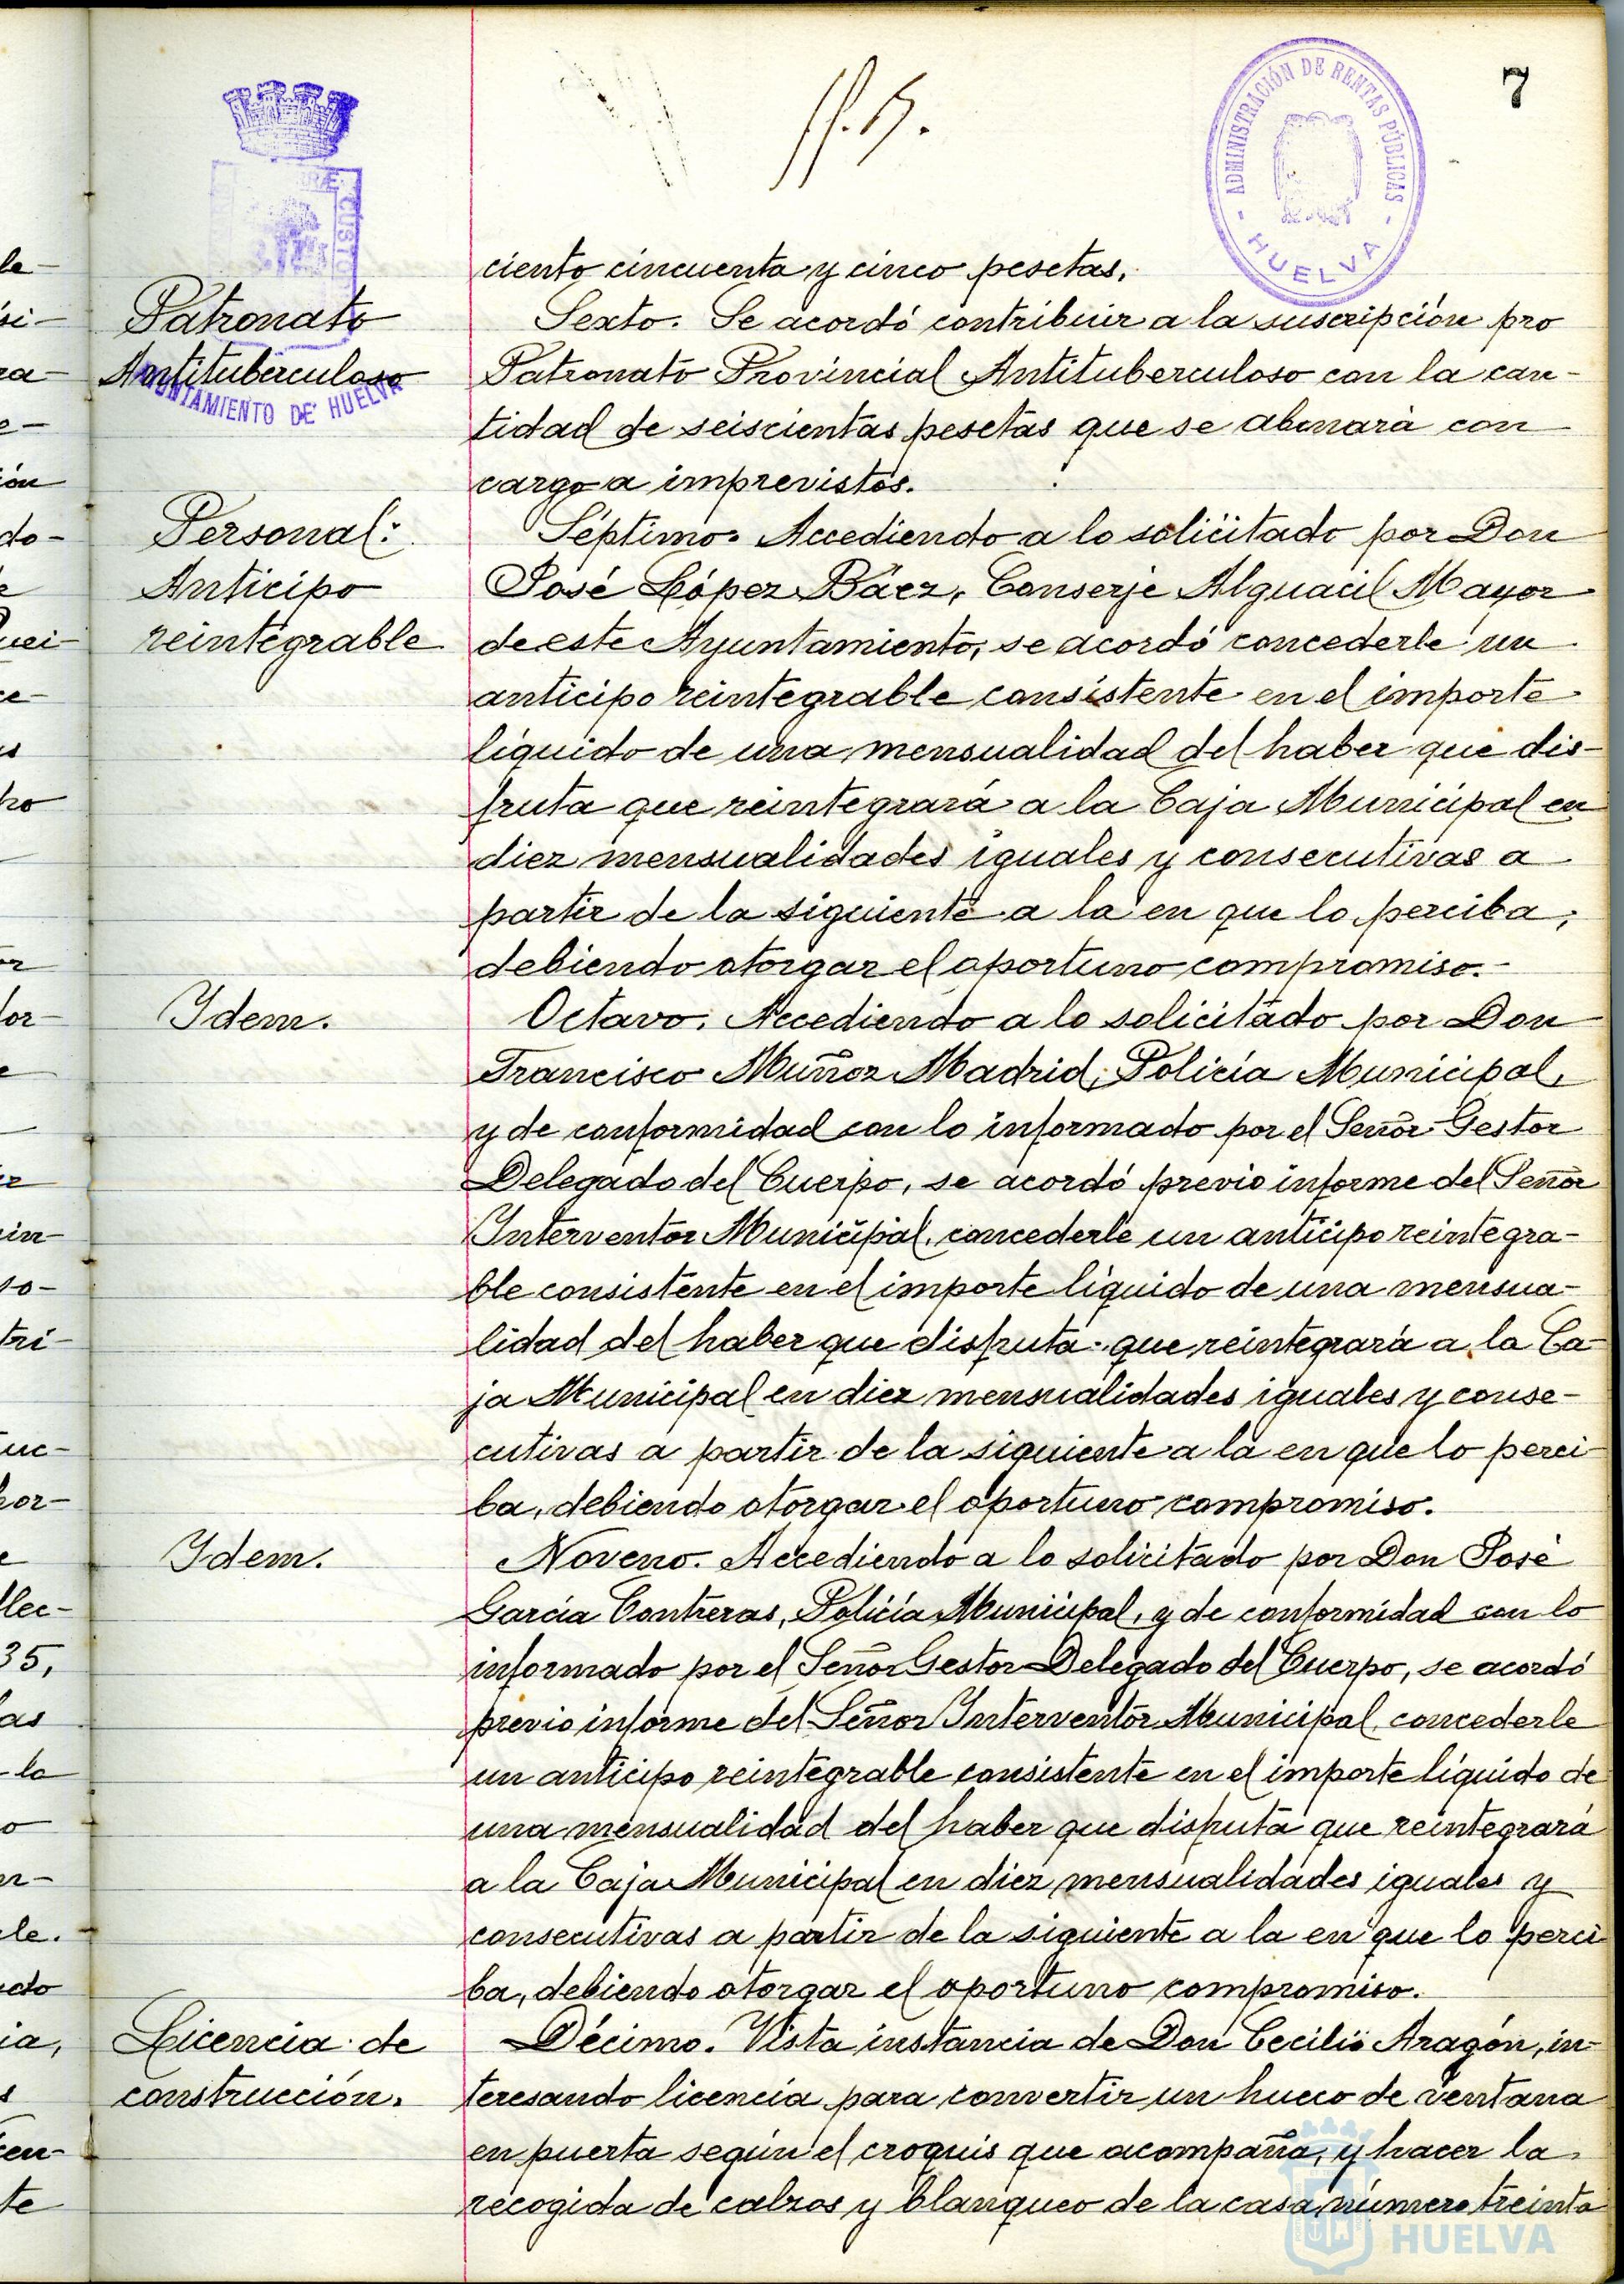 7
ADMINISTRACIÓN DE RENTAS PÚBLICAS
- HUELVA -
CUSTO
AYUNTAMIENTO DE HUELVA
ciento cincuenta y cinco pesetas.
Patronato
Antituberculoso
Sexto. Se acordó contribuir a la suscripción pro
Patronato Provincial Antituberculoso con la can-
tidad de seiscientas pesetas que se abonará con
cargo a imprevistos.
Personal:
Anticipo
reintegrable
Séptimo. Accediendo a lo solicitado por Don
José López Báez, Conserje Alguacil Mayor
de este Ayuntamiento, se acordó concederle un
anticipo reintegrable consistente en el importe
líquido de una mensualidad del haber que dis-
fruta que reintegrará a la Caja Municipal en
diez mensualidades iguales y consecutivas a
partir de la siguiente a la en que lo perciba,
debiendo otorgar el oportuno compromiso.-
Idem.
Octavo. Accediendo a lo solicitado por Don
Francisco Muñoz Madrid, Policía Municipal,
y de conformidad con lo informado por el Señor Gestor
Delegado del Cuerpo, se acordó previo informe del Señor
Interventor Municipal, concederle un anticipo reintegra-
ble consistente en el importe líquido de una mensua-
lidad del haber que disfruta que reintegrará a la Ca-
ja Municipal en diez mensualidades iguales y conse-
cutivas a partir de la siguiente a la en que lo perci
ba, debiendo otorgar el oportuno compromiso.
Idem.
Noveno. Accediendo a lo solicitado por Don José
García Contreras, Policía Municipal, y de conformidad con lo
informado por el Señor Gestor Delegado del Cuerpo, se acordó
previo informe del Señor Interventor Municipal, concederle
un anticipo reintegrable consistente en el importe líquido de
una mensualidad del haber que disfruta que reintegrará
a la Caja Municipal en diez mensualidades iguales y
consecutivas a partir de la siguiente a la en que lo perci
ba, debiendo otorgar el oportuno compromiso.
Licencia de
construcción.
Décimo. Vista instancia de Don Cecilio Aragón, in-
teresando licencia para convertir un hueco de ventana
en puerta según el croquis que acompaña, y hacer la
recogida de calzos y blanqueo de la casa número treinta
HUELVA